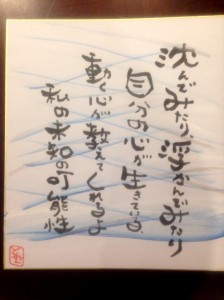 沈んでみたり、浮かんでみたり
自分の心が生きている。
動く心が教えてくれるよ
私の未知の可能性